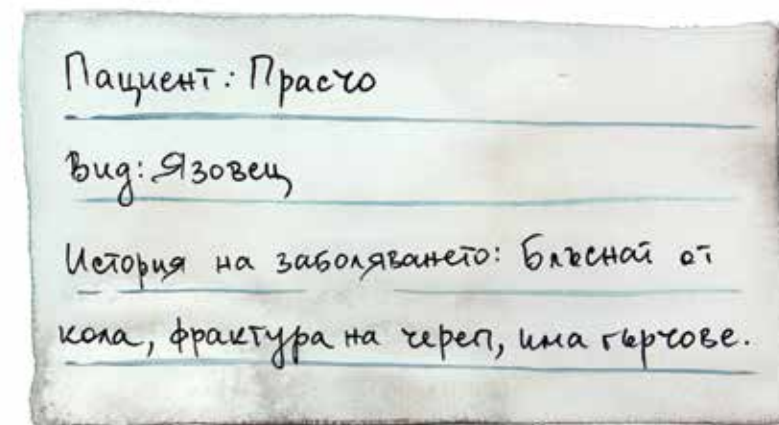 Пациент: Прасчо
Вид: Язовец
История на заболяването: Блъснат от
кола, фрактура на череп, има гърчове.